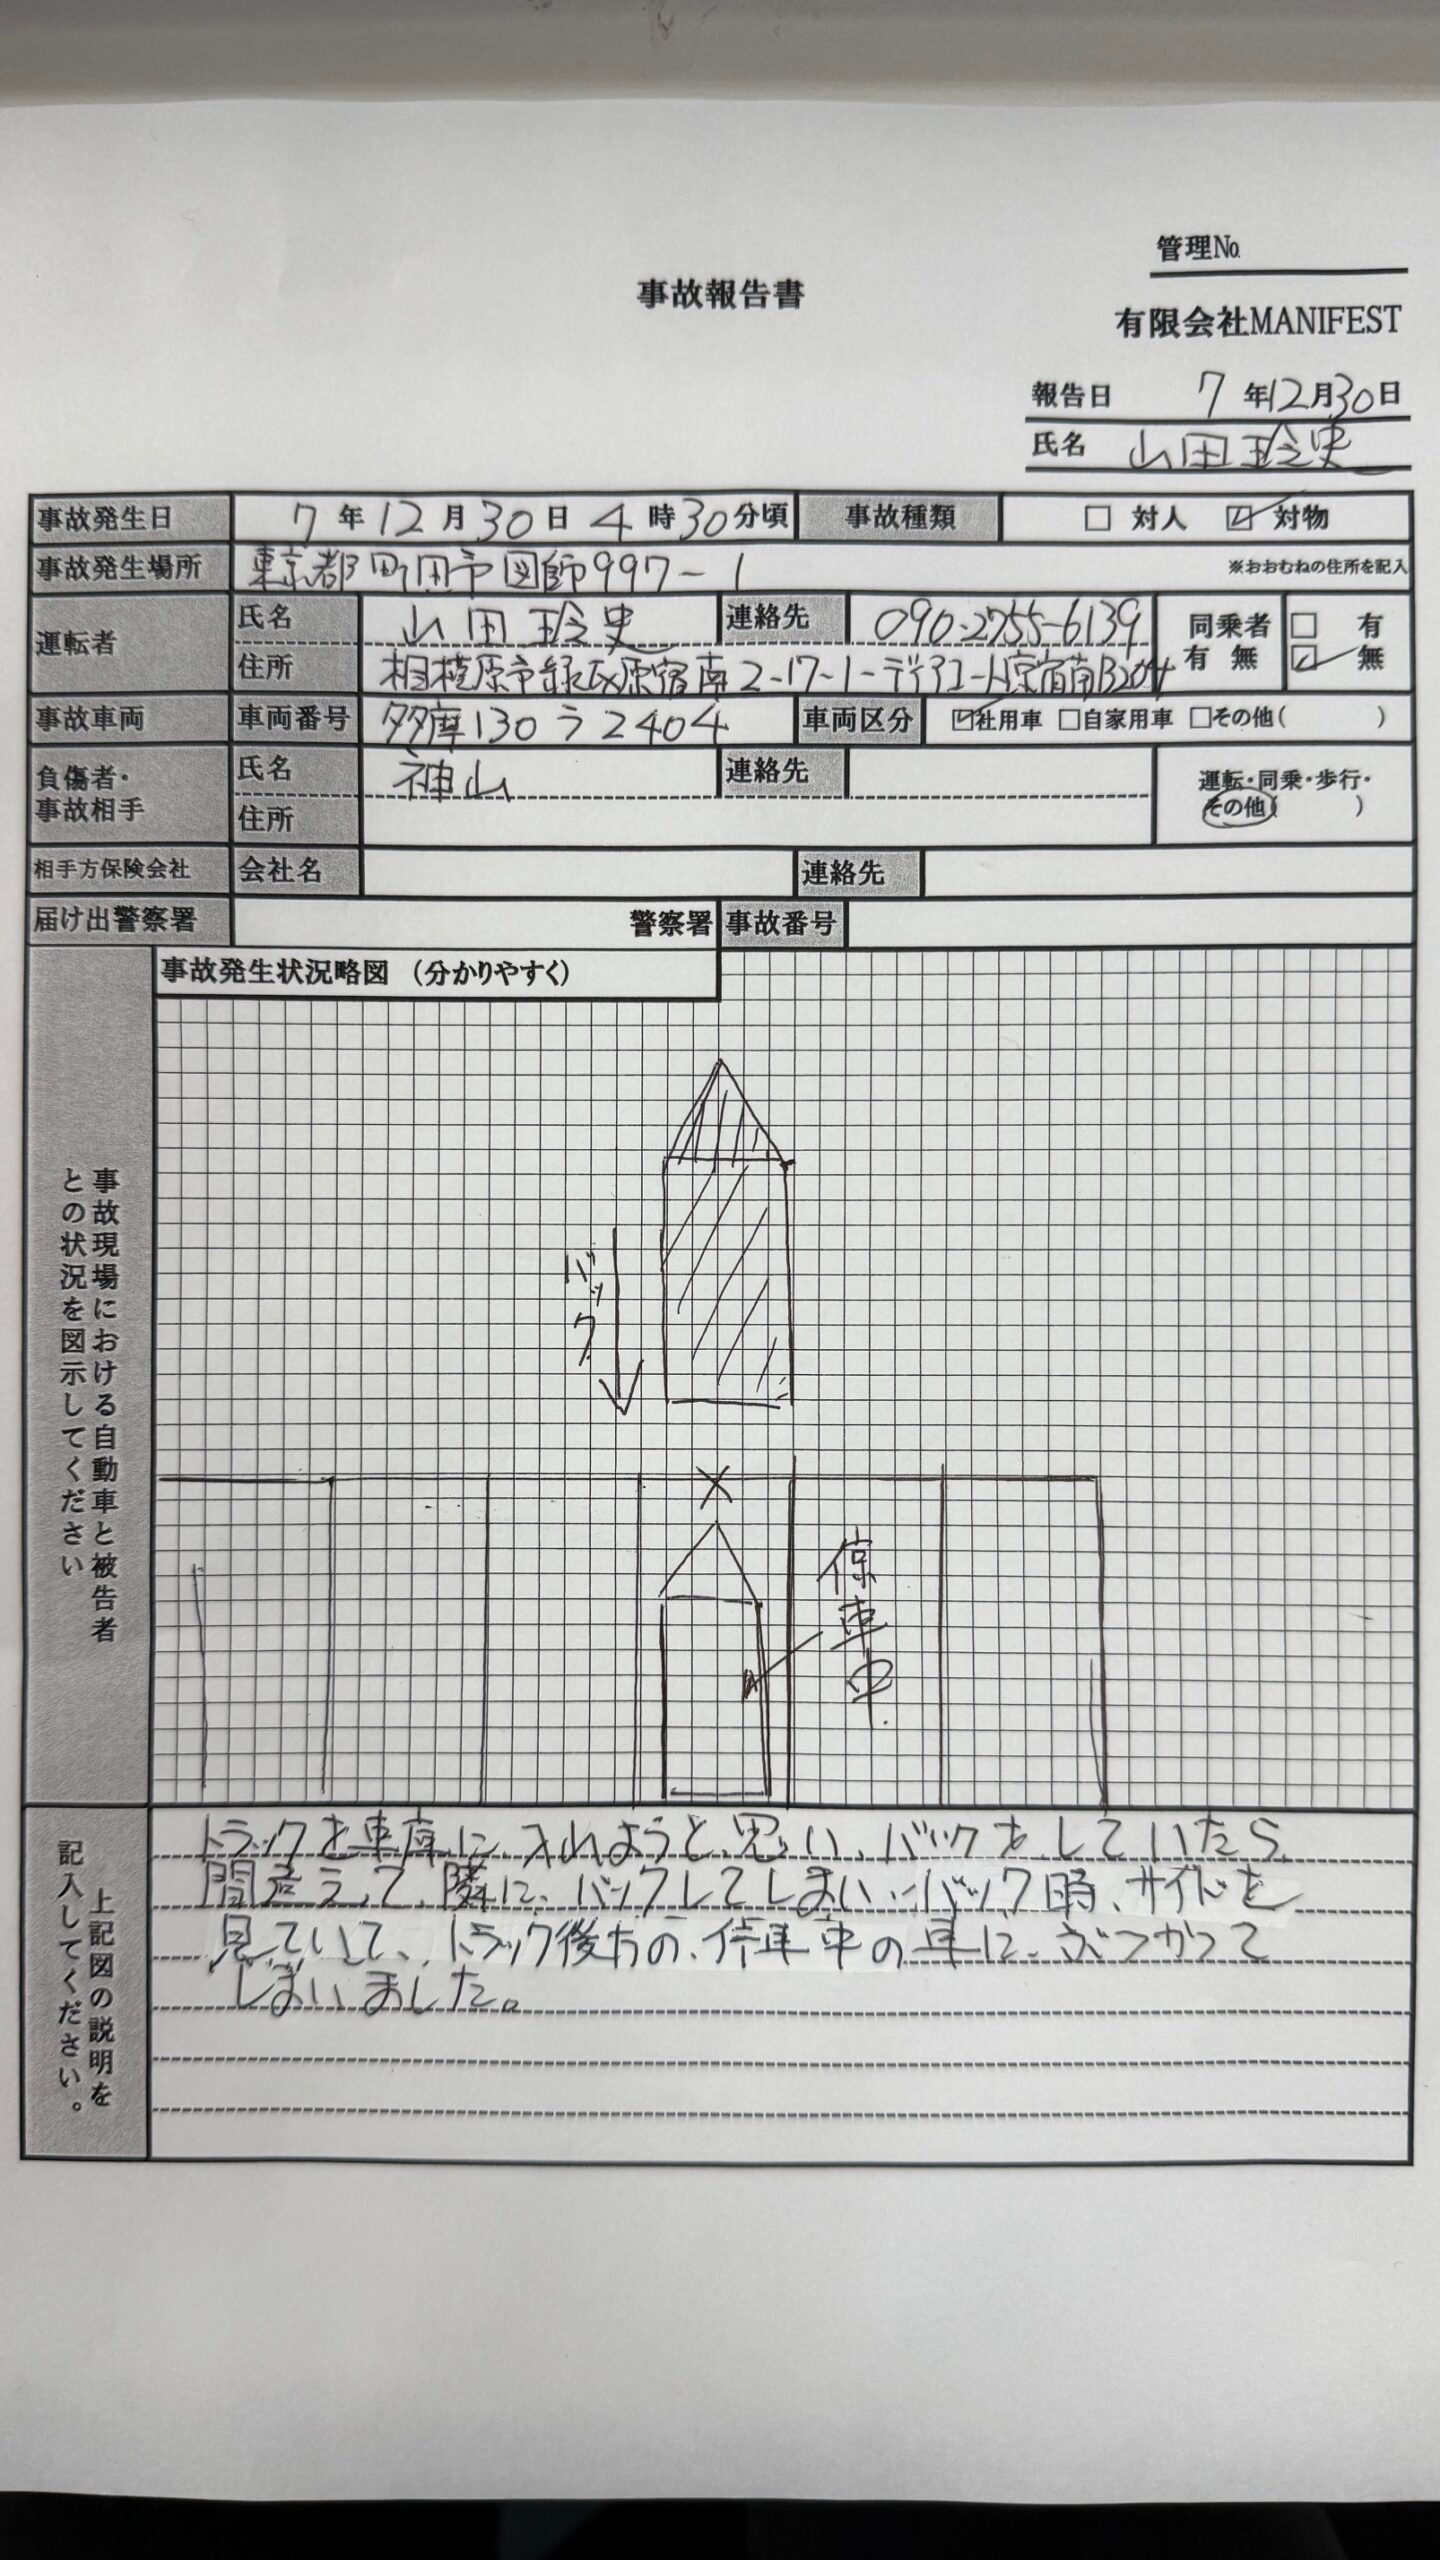 管理No.
事故報告書
有限会社MANIFEST
報告日 7年12月30日
氏名 山田玲史
事故発生日 7年12月30日4時30分頃 事故種類 □ 対人 ☑ 対物
事故発生場所 東京都町田市図師997-1 ※おおむねの住所を記入
運転者 氏名 山田玲史 連絡先 090-2755-6139 同乗者 有 無 □ 有 ☑ 無
住所 相模原市緑区原宿南2-17-1-ディアコート原宿南B204
事故車両 車両番号 多摩130う2404 車両区分 ☑社用車 □自家用車 □その他( )
負傷者・事故相手 氏名 神山 連絡先 運転・同乗・歩行・その他( )
住所
相手方保険会社 会社名 連絡先
届け出警察署 警察署 事故番号
事故発生状況略図 (分かりやすく)
事故現場における自動車と被告者
との状況を図示してください
バック
停車中
上記図の説明を
記入してください。
トラックを車庫に入れようと思い、バックをしていたら
間違えて、隣に、バックしてしまい、バック時、サイドを
見ていて、トラック後方の、停車中の車に、ぶつかって
しまいました。